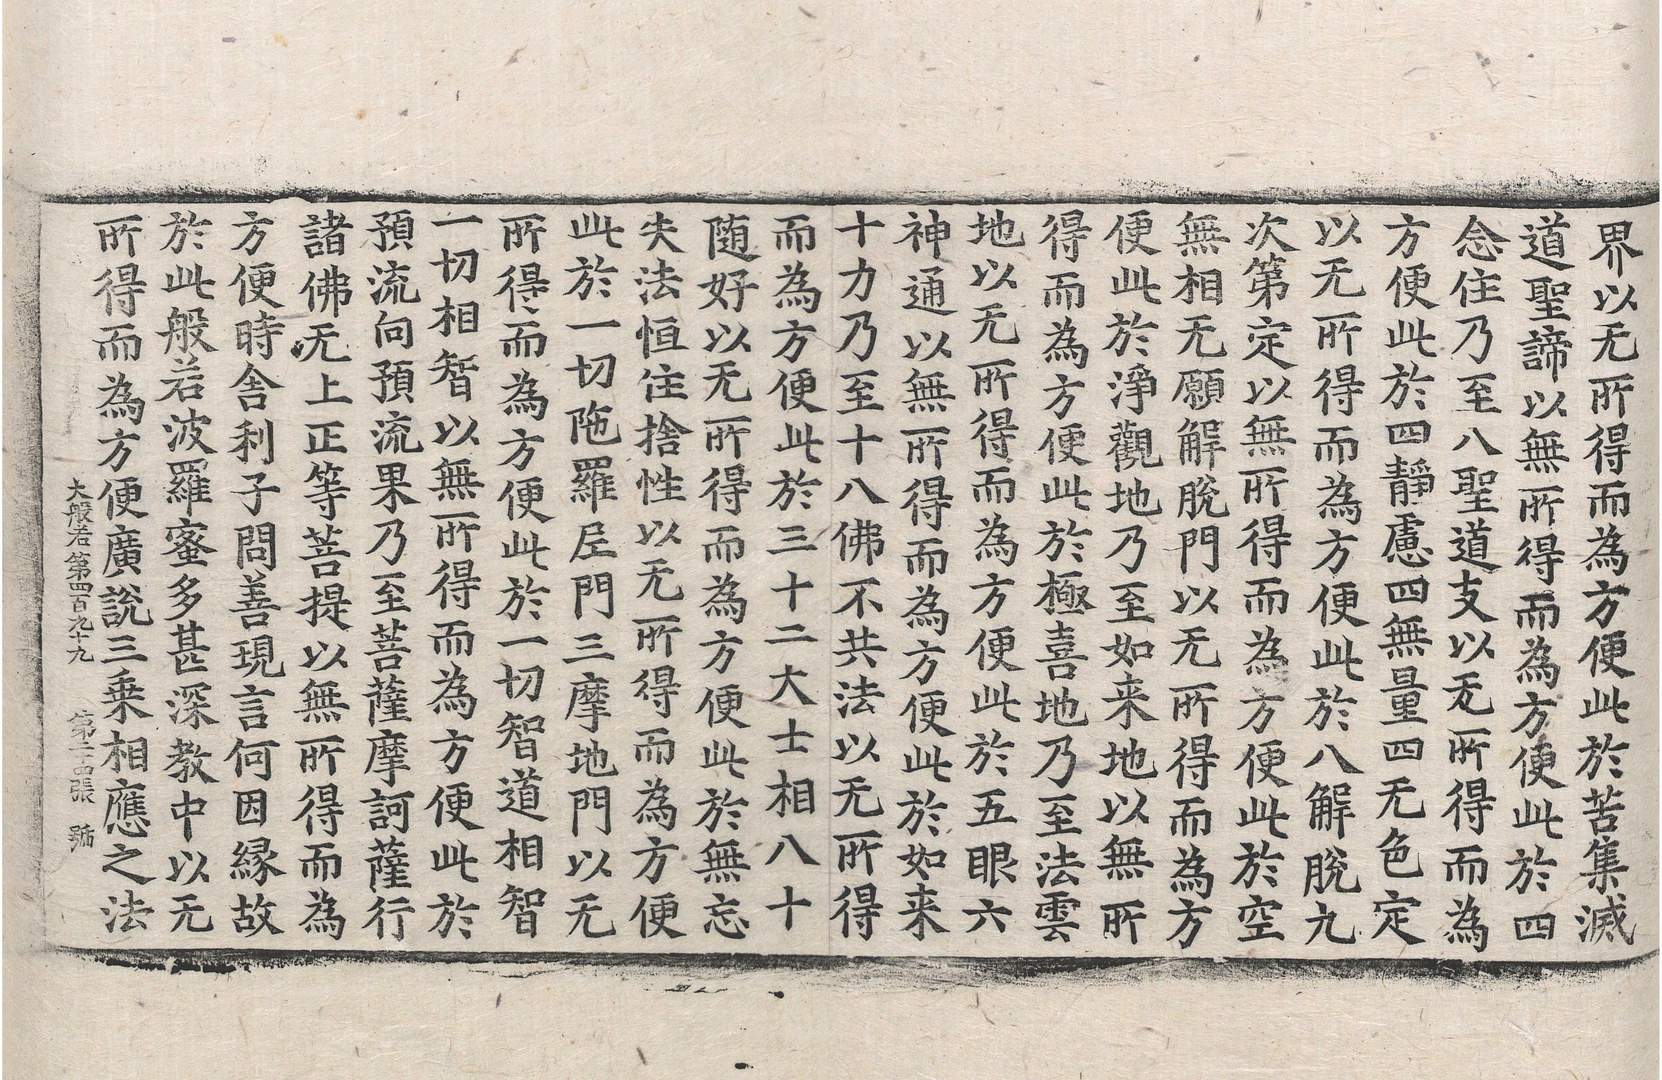 界以无所得而為方便此於苦集滅
道聖諦以無所得而為方便此於四
念住乃至八聖道支以无所得而為
方便此於四靜慮四無量四无色定
以无所得而為方便此於八解脫九
次第定以無所得而為方便此於空
無相无願解脫門以无所得而為方
便此於淨觀地乃至如来地以無所
得而為方便此於極喜地乃至法雲
地以无所得而為方便此於五眼六
神通以無所得而為方便此於如来
十力乃至十八佛不共法以无所得
而為方便此於三十二大士相八十
随好以无所得而為方便此於無忘
失法恒住捨性以无所得而為方便
此於一切陁羅尼門三摩地門以无
所得而為方便此於一切智道相智
一切相智以無所得而為方便此於
預流向預流果乃至菩薩摩訶薩行
諸佛无上正等菩提以無所得而為
方便時舎利子問善現言何因緣故
於此般若波羅蜜多甚深教中以无
所得而為方便廣說三乗相應之法
大般若第四百九十九 第二十四張 號